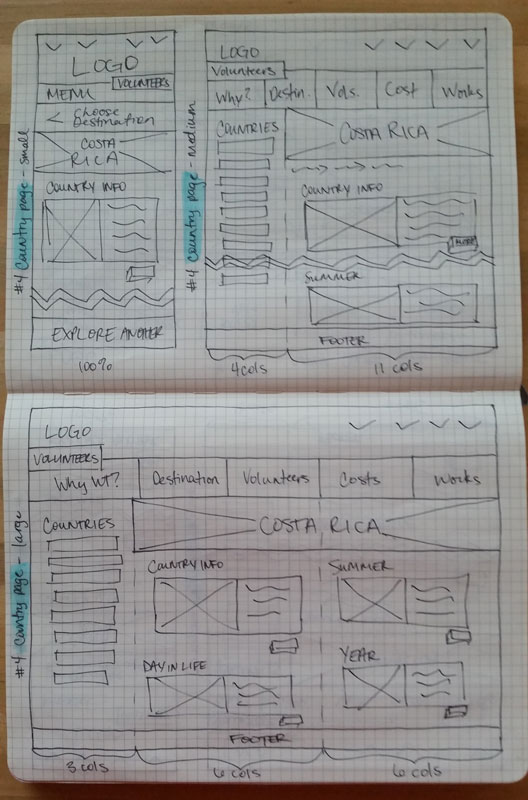 LOGO
VOLUNTEERS
MENU
< Choose
Destination
COSTA
RICA
COUNTRY INFO
EXPLORE ANOTHER
100%
#4 Country page - small
LOGO
Volunteers
Why?
Destin.
Vols.
Cost
Works
COUNTRIES
COSTA RICA
COUNTRY INFO
MORE
SUMMER
FOOTER
4 cols
11 cols
#4 Country page - medium
LOGO
VOLUNTEERS
Why WT?
Destination
Volunteers
Costs
Works
COUNTRIES
COSTA RICA
COUNTRY INFO
SUMMER
DAY IN LIFE
YEAR
FOOTER
3 cols
6 cols
6 cols
#4 Country page - large